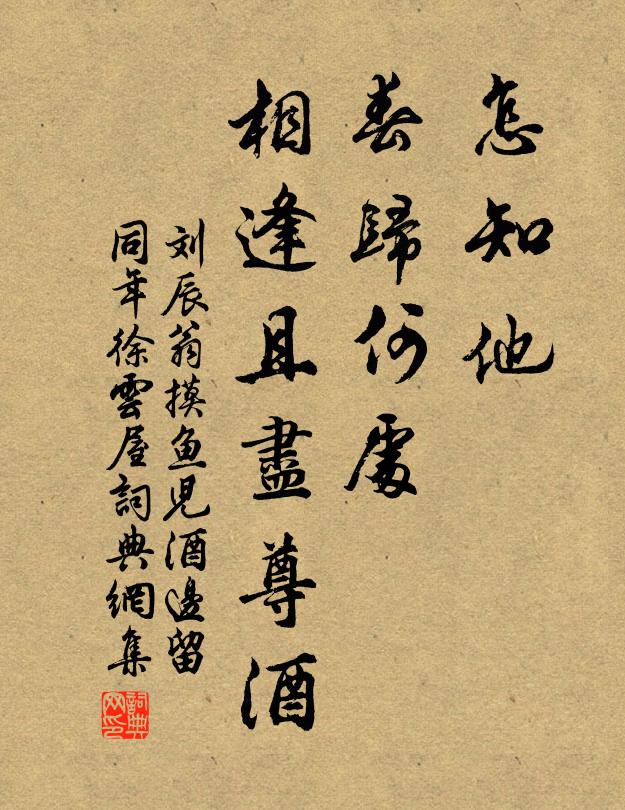 怎知他
春歸何處
相逢且盡尊酒
刘辰翁摸鱼児酒邊留
同年徐雲屋詞典網集
詞典网印